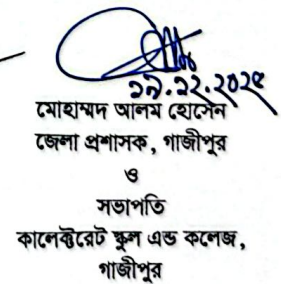 ২৯.১২.২০২৫
মোহাম্মদ আলম হোসেন
জেলা প্রশাসক, গাজীপুর
ও
সভাপতি
কালেক্টরেট স্কুল এন্ড কলেজ,
গাজীপুর